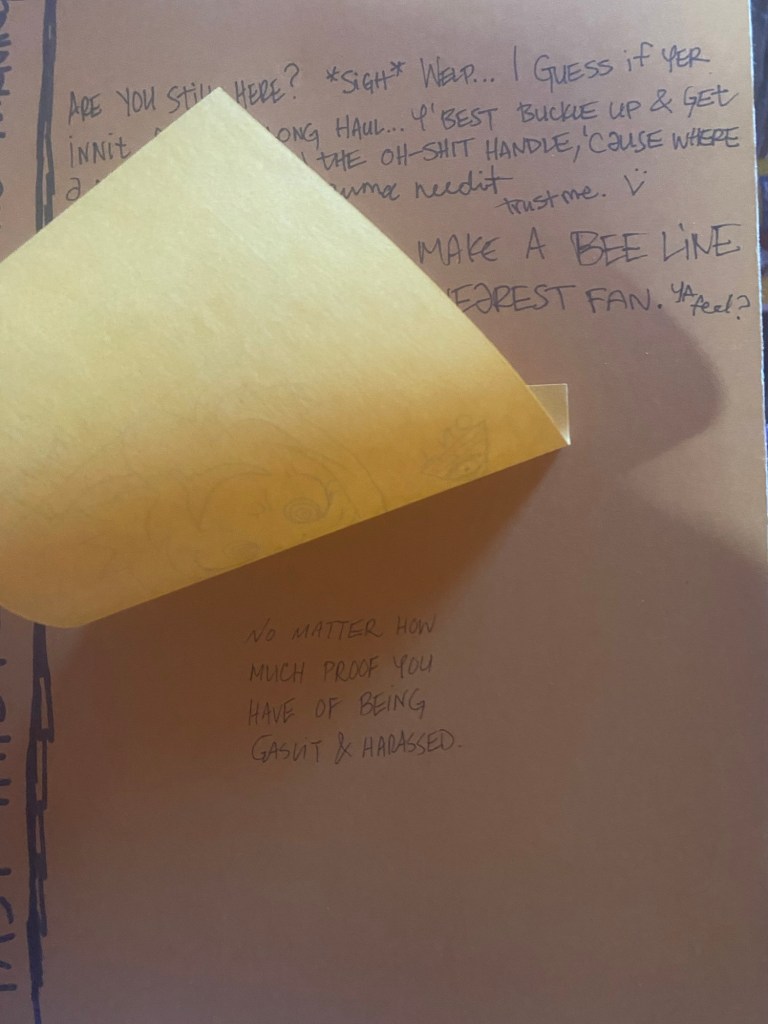 ARE YOU STILL HERE? *SIGH* WELP... I GUESS if YER
INNIT ONG HAUL... Y' BEST BUCKLE UP & GET
THE OH-SHIT HANDLE, 'CAUSE WHERE
a uma needit
trust me.
MAKE A BEE LINE
EAREST FAN. YA feel?
NO MATTER HOW
MUCH PROOF YOU
HAVE OF BEING
GASLIT & HARASSED.